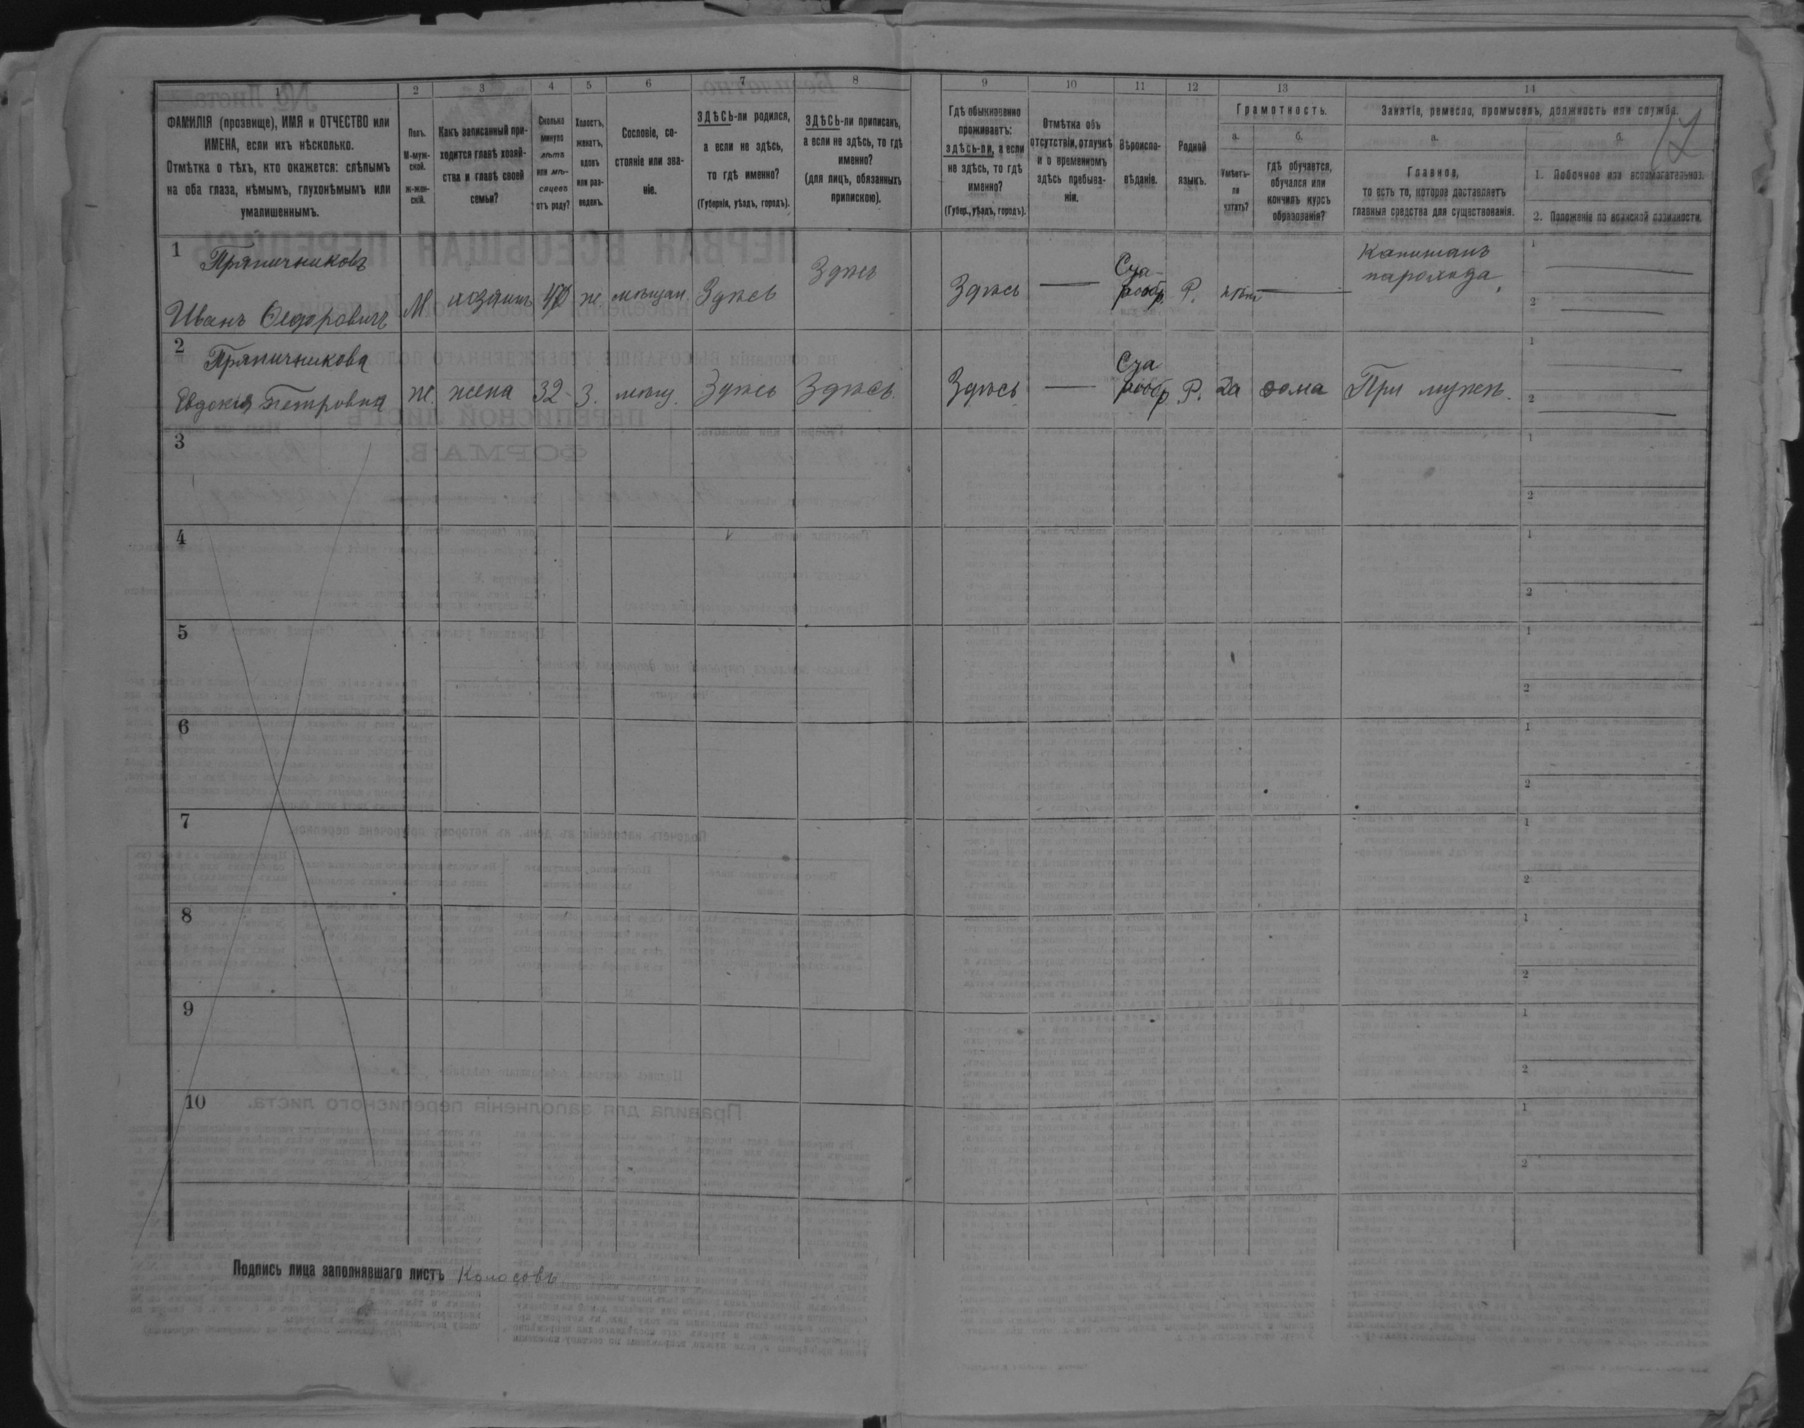 17
1
2
3
4
5
6
7
8
9
10
11
12
13
14
ФАМИЛІЯ (прозвище), ИМЯ и ОТЧЕСТВО или
ИМЕНА, если ихъ нѣсколько.
Отмѣтка о тѣхъ, кто окажется: слѣпымъ
на оба глаза, нѣмымъ, глухонѣмымъ или
умалишеннымъ.
Полъ.
М-муж-
ской.
ж-жен-
скій.
Какъ записанный при-
ходится главѣ хозяй-
ства и главѣ своей
семьи?
Сколько
минуло
лѣтъ
или мѣ-
сяцевъ
отъ роду?
Холостъ,
женатъ,
вдовъ
или раз-
веденъ.
Сословіе, со-
стояніе или зва-
ніе.
ЗДѢСЬ-ли родился,
а если не здѣсь,
то гдѣ именно?
(Губернія, уѣздъ, городъ).
ЗДѢСЬ-ли приписанъ,
а если не здѣсь, то гдѣ
именно?
(для лицъ, обязанныхъ
припискою).
Гдѣ обыкновенно
проживаетъ:
здѣсь-ли, а если
не здѣсь, то гдѣ
именно?
(Губер., уѣздъ, городъ).
Отмѣтка объ
отсутствіи, отлучкѣ
и о временномъ
здѣсь пребыва-
ніи.
Вѣроиспо-
вѣданіе.
Родной
языкъ.
Грамотность.
а.
Умѣетъ-
ли
читать?
б.
гдѣ обучается,
обучался или
кончилъ курсъ
образованія?
Занятіе, ремесло, промыселъ, должность или служба.
а.
Главное,
то есть то, которое доставляетъ
главныя средства для существованія.
б.
1. Побочное или вспомогательное.
2. Положеніе по воинской повинности.
1
Пряничниковъ
Иванъ Федоровичъ
М
хозяинъ
ж.
мѣщан.
Здѣсь
Здѣсь
Здѣсь
—
Ста-
рообр.
Р.
нѣтъ
—
Капитанъ
парохода.
1
2
2
Пряничникова
Евдокія Петровна
ж.
жена
32
з.
мѣщ.
Здѣсь
Здѣсь
Здѣсь
—
Ста
рообр
Р.
да
дома
При мужѣ.
1
2
3
1
2
4
1
2
5
1
2
6
1
2
7
1
2
8
1
2
9
1
2
10
1
2
Подпись лица заполнявшаго листъ Колосовъ